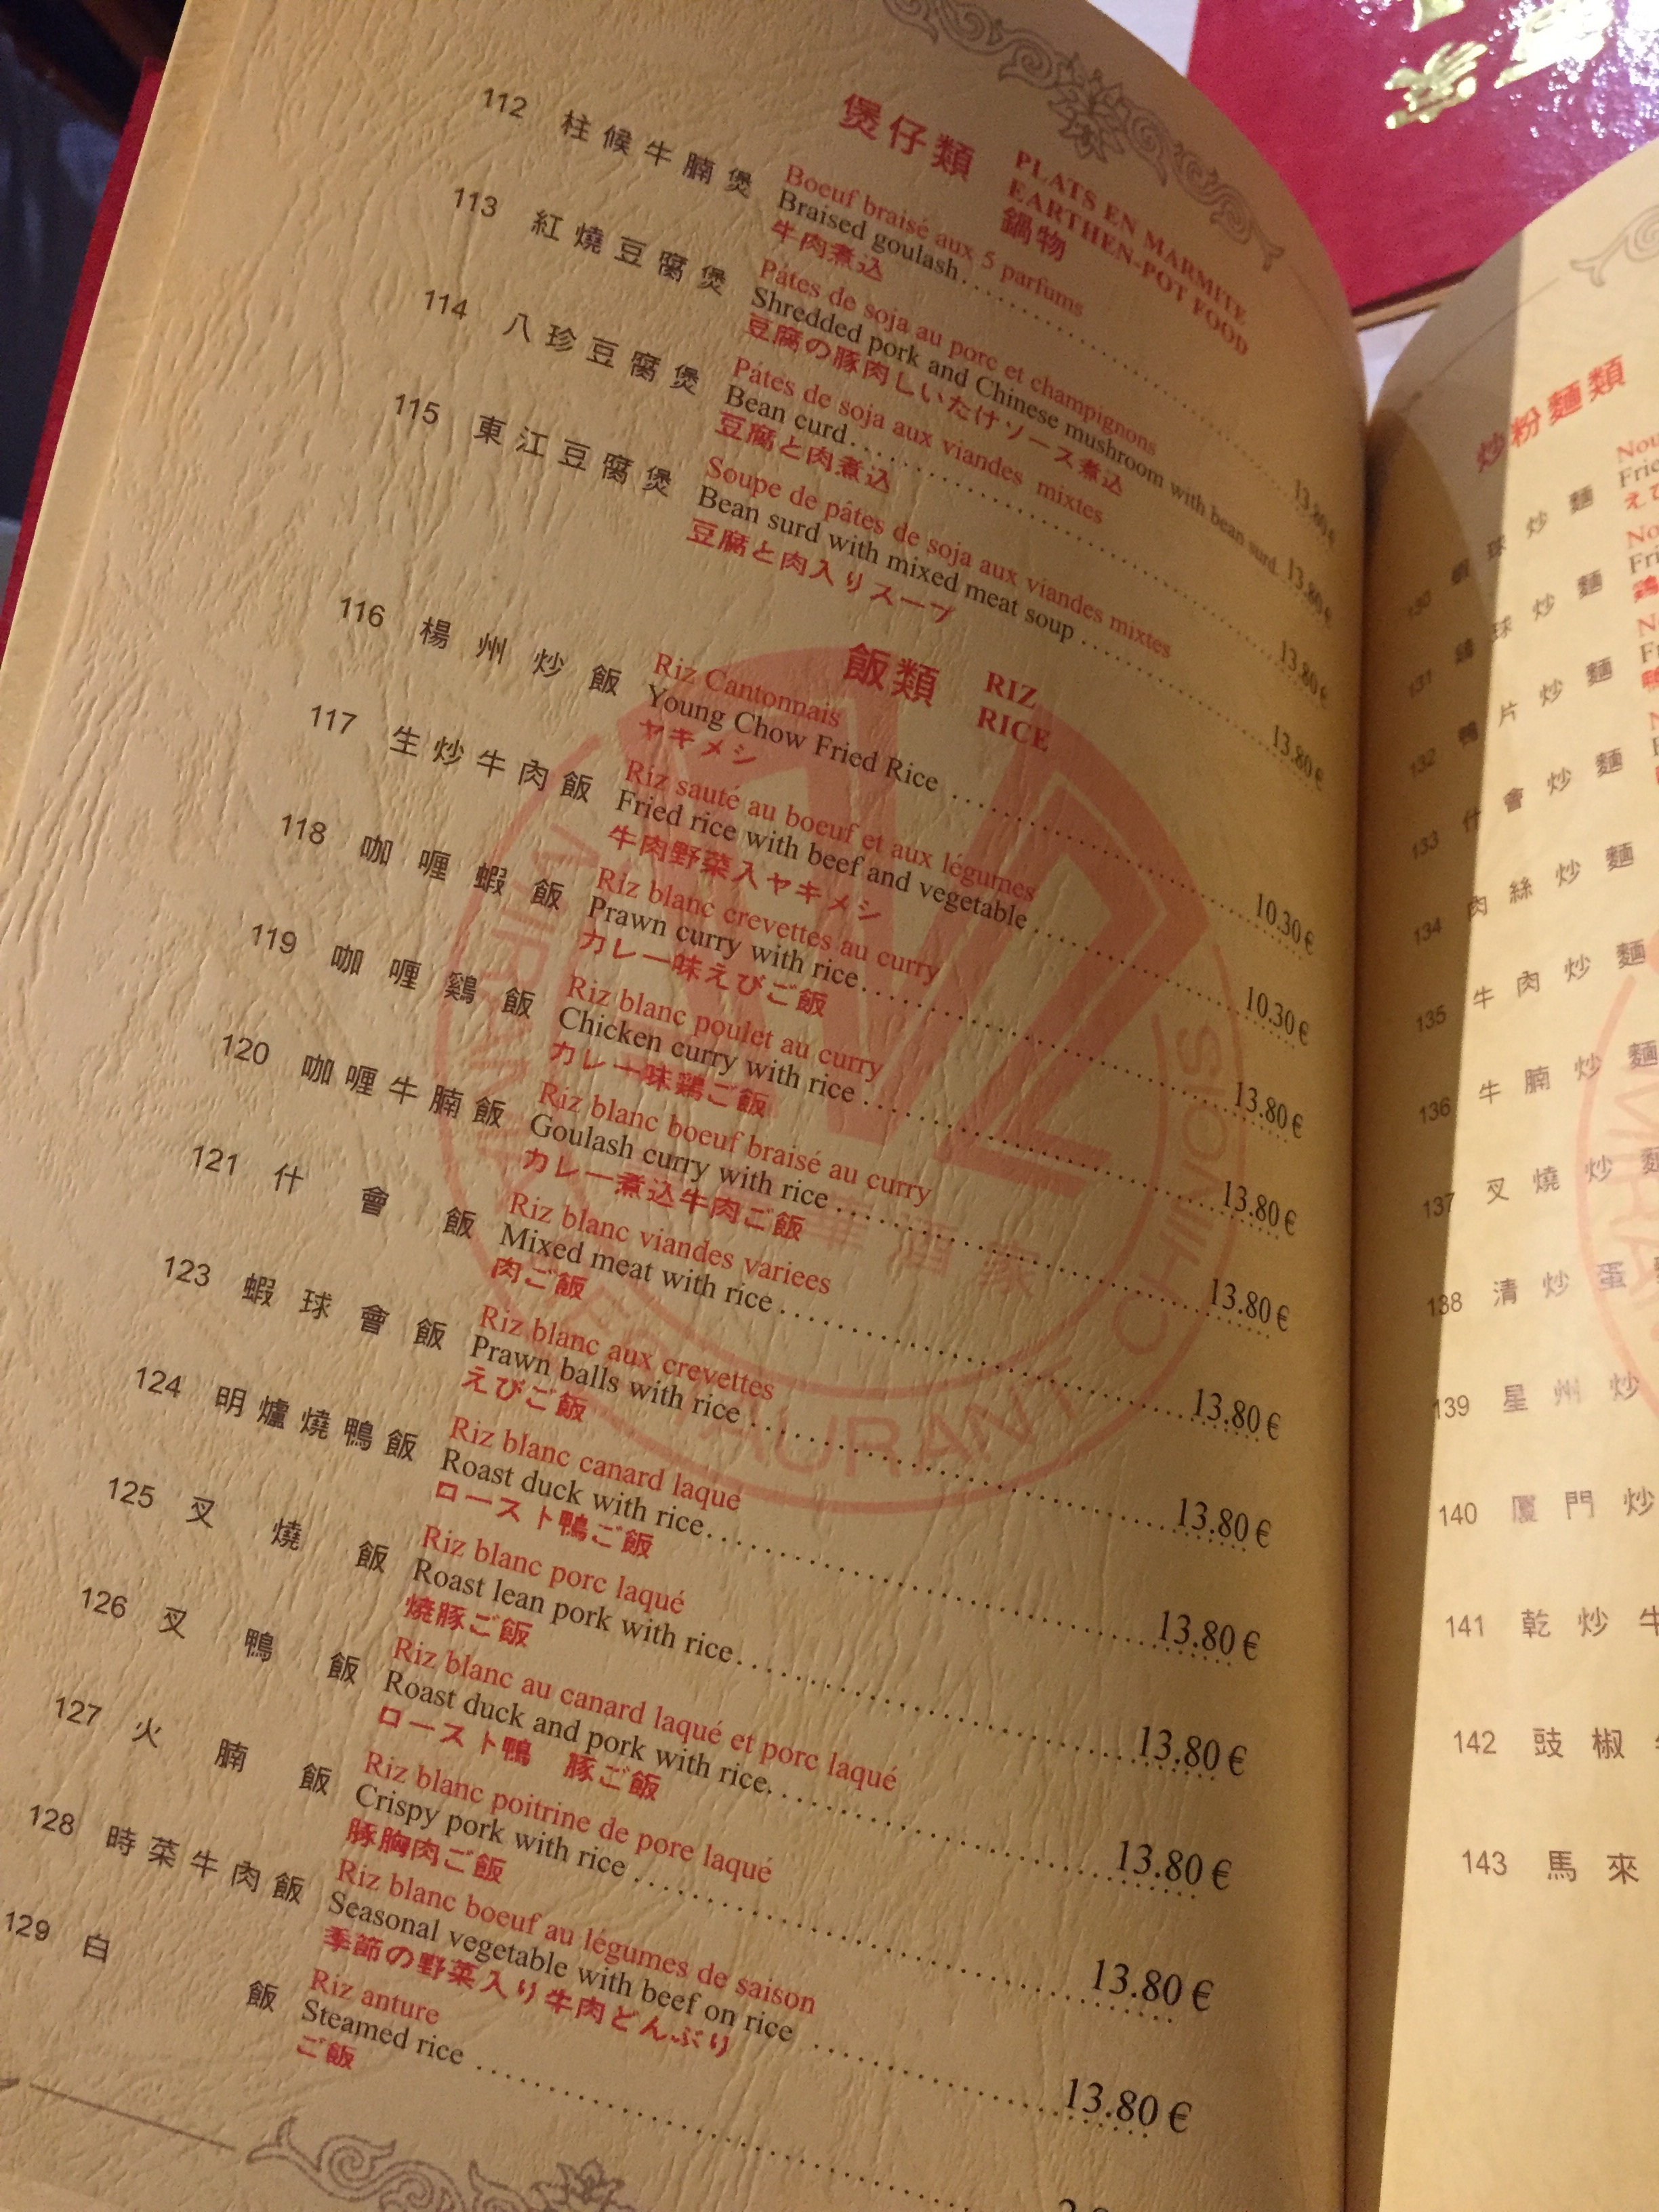 煲仔類
PLATS EN MARMITE
EARTHEN-POT FOOD
鍋物
112 柱候牛腩煲 Boeuf braisé aux 5 parfums
Braised goulash 13.80 €
牛肉煮込
113 紅燒豆腐煲 Pâtes de soja au porc et champignons
Shredded pork and Chinese mushroom with bean surd. 13.80 €
豆腐の豚肉しいたけソース煮込
114 八珍豆腐煲 Pâtes de soja aux viandes mixtes
Bean curd 13.80 €
豆腐と肉煮込
115 東江豆腐煲 Soupe de pâtes de soja aux viandes mixtes
Bean surd with mixed meat soup 13.80 €
豆腐と肉入りスープ
飯類
RIZ
RICE
116 楊州炒飯 Riz Cantonnais
Young Chow Fried Rice 10.30 €
ヤキメシ
117 生炒牛肉飯 Riz sauté au boeuf et aux légumes
Fried rice with beef and vegetable 10.30 €
牛肉野菜入ヤキメシ
118 咖喱蝦飯 Riz blanc crevettes au curry
Prawn curry with rice 13.80 €
カレー味えびご飯
119 咖喱鷄飯 Riz blanc poulet au curry
Chicken curry with rice 13.80 €
カレー味鶏ご飯
120 咖喱牛腩飯 Riz blanc boeuf braisé au curry
Goulash curry with rice 13.80 €
カレー煮込牛肉ご飯
121 什會飯 Riz blanc viandes variees
Mixed meat with rice 13.80 €
肉ご飯
123 蝦球會飯 Riz blanc aux crevettes
Prawn balls with rice 13.80 €
えびご飯
124 明爐燒鴨飯 Riz blanc canard laque
Roast duck with rice 13.80 €
ロースト鴨ご飯
125 叉燒飯 Riz blanc porc laqué
Roast lean pork with rice 13.80 €
焼豚ご飯
126 叉鴨飯 Riz blanc au canard laqué et porc laqué
Roast duck and pork with rice. 13.80 €
ロースト鴨 豚ご飯
127 火腩飯 Riz blanc poitrine de pore laqué
Crispy pork with rice 13.80 €
豚胸肉ご飯
128 時菜牛肉飯 Riz blanc boeuf au légumes de saison
Seasonal vegetable with beef on rice 13.80 €
季節の野菜入り牛肉どんぶり
129 白飯 Riz anture
Steamed rice
ご飯
華酒家
AURANT CHINOIS
炒粉麵類
130 蝦球炒麵
131 鷄球炒麵
132 鴨片炒麵
133 什會炒麵
134 肉絲炒麵
135 牛肉炒麵
136 牛腩炒麵
137 叉燒炒
138 清炒蛋
139 星州炒
140 廈門炒
141 乾炒牛
142 豉椒
143 馬來